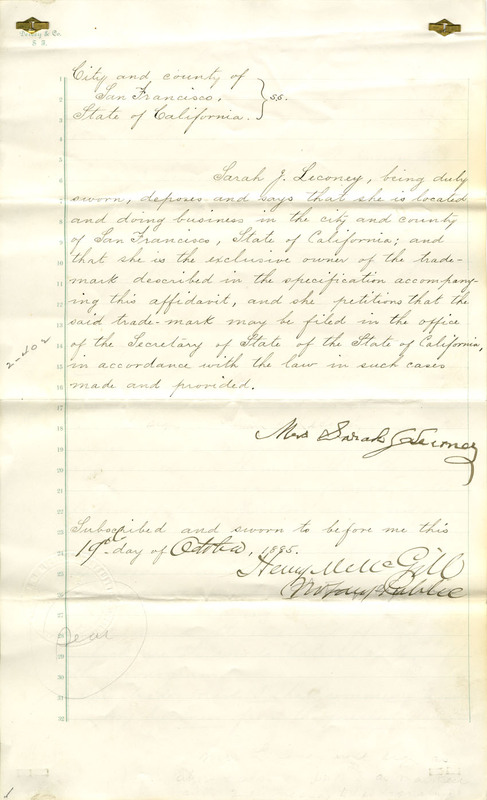 City and county of
San Francisco,
State of California. } s.s.
Sarah J. Leconey, being duly
sworn, deposes and says that she is located
and doing business in the city and county
of San Francisco, State of California; and
that she is the exclusive owner of the trade-
mark described in the specification accompany-
ing this affidavit, and she petitions that the
said trade-mark may be filed in the office
of the Secretary of State of the State of California,
in accordance with the law in such cases
made and provided.
2-402
Mrs Sarah J Leconey
Subscribed and sworn to before me this
19th day of October, 1895.
Henry M McGill
Notary Public
Seal
1
2
3
4
5
6
7
8
9
10
11
12
13
14
15
16
17
18
19
20
21
22
23
24
25
26
27
28
29
30
31
32